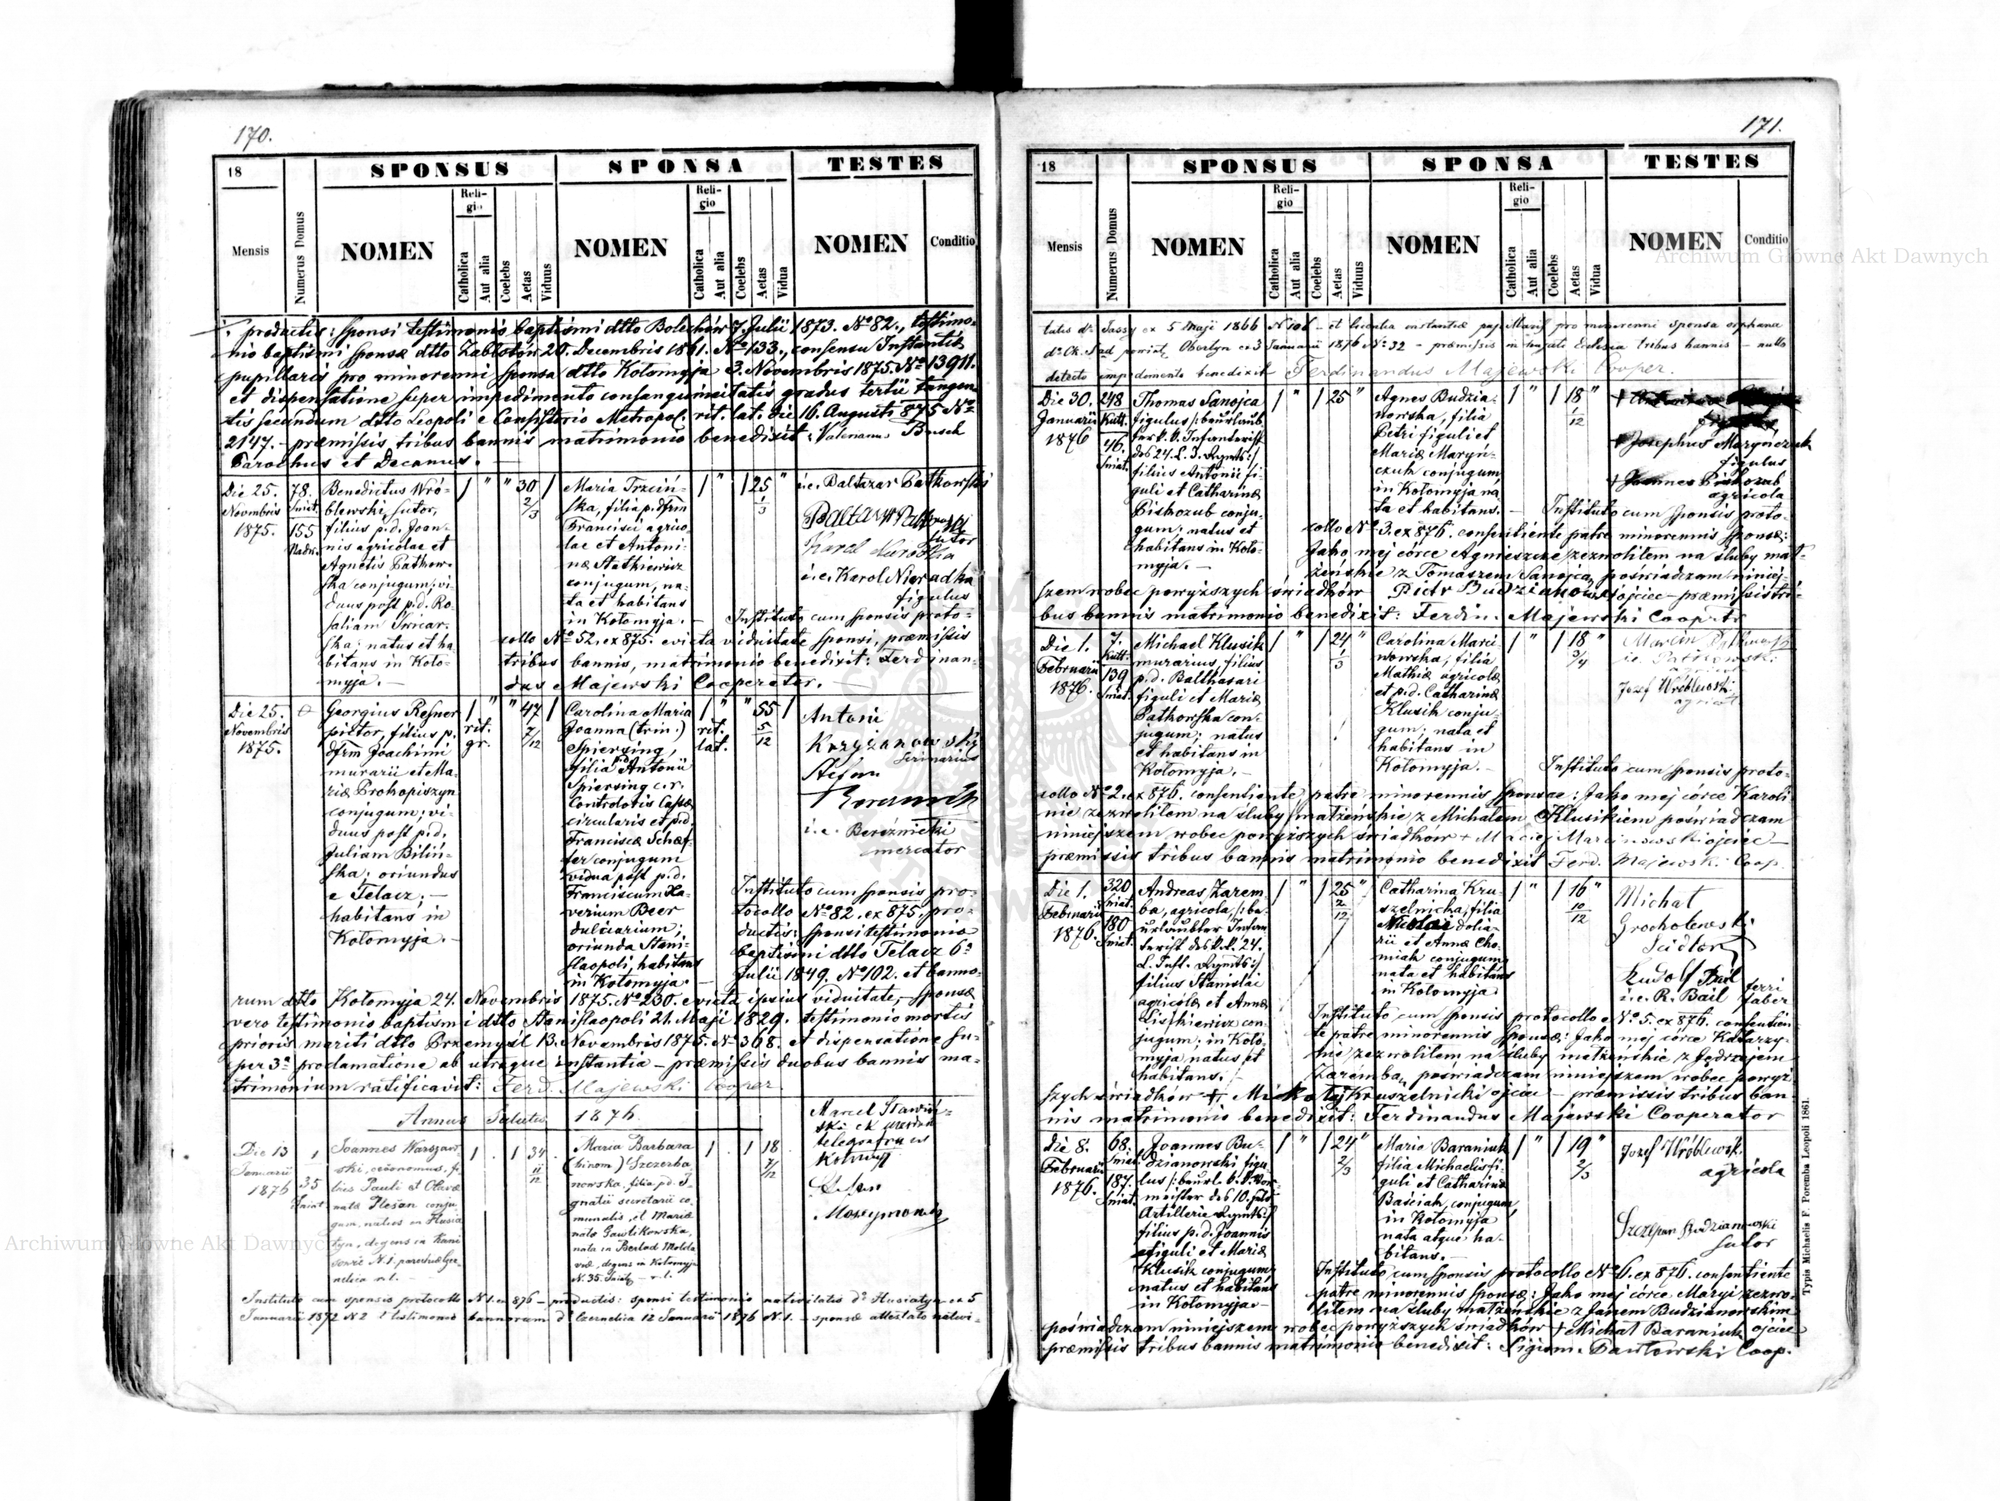 170.
18
SPONSUS
SPONSA
TESTES
Mensis
Numerus Domus
NOMEN
Religio
Catholica
Aut alia
Coelebs
Aetas
Viduus
NOMEN
Religio
Catholica
Aut alia
Coelebs
Aetas
Vidua
NOMEN
Conditio
productis: sponsi testimonio baptismi dtto Bolechów 7. Julii 1873. No 82., testimo-
nio baptismi sponsæ dtto Zabłotów 20. Decembris 1861. No 133., consensu Instantiæ
pupillaris pro minorenni sponsa dtto Kołomyja 3. Novembris 1875. No 13911.
et dispensatione super impedimento consanguineitatis gradus tertii tangen-
tis secundum dtto Leopoli e Consistorio Metropol. rit. lat. die 16. Augusti 875 No
2147. – præmissis tribus bannis matrimonio benedixit: Valerianus Busch
Parochus et Decanus. –
Die 25.
Novembris
1875.
78.
Sniat.
155
Nadw.
Benedictus Wró-
blewski, sutor,
filius p.d. Joan-
nis agricolae et
Agnetis Patkow-
ska conjugum; vi-
duus post p.d. Ro-
saliam
ska; natus et ha-
bitans in Koło-
myja. –
1 " " 30 2/3 1
Maria Trzciń-
ska, filia p.dfm
Francisci agrico-
lae et Antoni-
næ Statkiewicz
conjugum, na-
ta et habitans
in Kołomyja. –
1 " 1 25 1/3
i.e. Baltazar Patkowski
sutor
i.e. Karol Nieradka
figulus
Instituto cum sponsis proto-
collo No 52. ex 875. evicta viduitate sponsi, præmissis
tribus bannis, matrimonio benedixit: Ferdinan-
dus Majewski Cooperator. –
Die 25.
Novembris
1875.
Georgius Resner
pistor, filius p.
dfm Joachimi
murarii et Ma-
riæ Prokopiszyn
conjugum; vi-
duus post p.d.
Juliam Biliń-
ska; oriundus
e Telacz; –
habitans in
Kołomyja. –
1 rit. gr. " " 47 7/12 1
Carolina Maria
Joanna (trin.)
Spiersing,
filia pd Antonii
Spiersing c.r.
Controloris Cassæ
circularis et p.d.
Franciscæ Schæf-
fer conjugum
vidua post p.d.
Franciscum Xa-
verium Beer
dulciarium;
oriunda Stani-
slaopoli, habitans
in Kołomyja. –
1 rit. lat. " " 55 5/12 1
Antoni
Krzyżanowski
Stefan
i.e. Bereźnicki
mercator
Instituto cum sponsis pro-
tocollo No 82. ex 875. pro-
ductis: sponsi testimonio
baptismi dtto Telacz 6a
Julii 1849, No 102. et banno-
rum dtto Kołomyja 24. Novembris 1875. No 230. evicta ipsius viduitate, sponsæ
vero testimonio baptismi dtto Stanislaopoli 21. Maji 1829. testimonio mortis
prioris mariti dtto Przemyśl 13. Novembris 1875. No 368. et dispensatione su-
per 3a proclamatione ab utraque instantia – præmissis duobus bannis ma-
trimonium ratificavit: Ferd. Majewski Cooper
Annus Salutis 1876.
Die 13
Januarii
1876
35
Sniat.
Joannes Warszaw-
ski, œconomus, fi-
lius Pauli et Olavæ
natæ Pleśan conju-
gum, natus in Husia
tyn, degens in
1 . 1 34 11/12
Maria Barbara
(binom) Szczerba
nowska, filia pd. I-
gnatii secretarii co
munalis, et Mariæ
natæ Gawlikowska,
nata in Berlad Molda
viæ, degens in Kołomyja
N. 35. Sniat. – r.l. –
1 . 1 18 7/12
Marcel Stawiń-
ski
telegrafu w
Kołomyji
Instituto cum sponsis protocollo N 1. ex 876 – productis: sponsi testimonio nativitatis dto Husiatyn ex 5
Januarii 1872 N 2 et testimonio bannorum dto Czernelica 12 Januarii 1876 N. 1. – sponsæ attestato nativi-
171.
18
SPONSUS
SPONSA
TESTES
Mensis
Numerus Domus
NOMEN
Religio
Catholica
Aut alia
Coelebs
Aetas
Viduus
NOMEN
Religio
Catholica
Aut alia
Coelebs
Aetas
Vidua
NOMEN
Conditio
tatis dto Jassy ex 5 Maji 1866 N 108 – et licentia instantiæ pupillaris pro minorenni sponsa orphana
dto Ck. Sąd powiat. Obertyn ex 3 Januarii 1876 No 32 – præmissis in utraque Ecclesia tribus bannis – nullo
detecto impedimento benedixit Ferdinandus Majewski Cooper.
Die 30.
Januarii
1876
248
Kutt.
46.
Sniat.
Thomas Sanojca
figulus /: beurlaub-
ter k.k. Infanterist
des 24. L. I. Rgmts :/
filius Antonii fi-
guli et Catharinæ
Piskozub conju-
gum; natus et
habitans in Koło-
myja. –
1 " 1 25 "
Agnes Budzia-
nowska, filia
Petri figuli et
Mariæ Maryn-
czuk conjugum,
in Kołomyja na-
ta et habitans. –
1 " 1 18 1/12 "
+ Josephus Marynczuk
figulus
+ Joannes Piskozub
agricola
Instituto cum sponsis proto-
collo No 3. ex 876. consentiente patre minorennis sponsæ:
Jako mej córce Agnieszce zezwoliłem na śluby mał-
żeńskie z Tomaszem Sanojca, poświadczam niniej-
szem wobec powyższych świadków Piotr Budzianowski ojciec – præmissis tri-
bus bannis matrimonio benedixit: Ferdin. Majewski Cooprtr
Die 1.
Februarii
1876.
7.
Kutt.
139
Sniat.
Michael Klusik
murarius, filius
p.d. Balthasari
figuli et Mariæ
Patkowska con-
jugum; natus
et habitans in
Kołomyja. –
1 " 1 24 1/3 "
Carolina Marci-
nowska, filia
Mathiæ agricolæ
et p.d. Catharinæ
Klusik conju-
gum; nata et
habitans in
Kołomyja. –
1 " 1 18 3/4 "
i.e. Patkowski
Jozef Wróblewski
agricol.
Instituto cum sponsis proto-
collo No 2. ex 876. consentiente patre minorennis sponsae: Jako mej córce Karoli-
nie zezwoliłem na śluby małżeńskie z Michałem Klusikiem poświadczam
niniejszem wobec powyższych świadków + Maciej Marcinowski ojciec –
præmissis tribus bannis matrimonio benedixit Ferd. Majewski Coop.
Die 1.
Februarii
1876.
320
Sniat.
180
Sniat.
Andreas Zarem-
ba, agricola, /: be-
urlaubter Infan-
terist des k.k. 24.
L. Inft. Rgmts :/
filius Stanislai
agricolæ et Annæ
Liskiewicz con-
jugum; in Koło-
myja natus et
habitans. –
1 " 1 25 2/12 "
Catharina Kru-
szelnicka, filia
Nicolai dolia-
rii et Annæ Cho-
miak conjugum
nata et habitans
in Kołomyja
1 " 1 16 10/12 "
Michał
Grocholewski
Rudolf Bail
i.e. R. Bail ferri
faber
Instituto cum sponsis protocollo No 5. ex 876. consentien-
te patre minorennis sponsæ: Jako mej córce Katarzy-
nie zezwoliłem na śluby małżeńskie z Jędrzejem
Zaremba, poświadczam niniejszem wobec powyż-
szych świadków + Mikołaj Kruszelnicki ojciec – præmissis tribus ban-
nis matrimonio benedixit: Ferdinandus Majewski Cooperator
Die 8.
Februarii
1876.
68.
Sniat.
187.
Sniat.
Joannes Bu-
dzianowski figu-
lus /: beurl. k.k. Vor-
meister des 10. Feld
Artillerie Rgmts :/
filius p.d. Joannis
figuli et Mariæ
Klusik conjugum,
natus et habitans
in Kołomyja –
1 " 1 24 2/3 "
Maria Baraniuk
filia Michaelis fi-
guli et Catharinæ
Baściak conjugum,
in Kołomyja
nata atque ha-
bitans. –
1 " 1 19 2/3 "
Jozef Wróblewski
agricola
Szczepan Budzianowski
sutor
Instituto cum sponsis protocollo No 6. ex 876. consentiente
patre minorennis sponsæ: Jako mej córce Maryi zezwo-
liłem na śluby małżeńskie z Janem Budzianowskim
poświadczam niniejszem wobec powyższych świadków + Michał Baraniuk ojciec
præmissis tribus bannis matrimonio benedixit: Sigism. Pawłowski Coop.
Typis Michaelis F. Poremba Leopoli 1861.
Archiwum Główne Akt Dawnych
Archiwum Główne Akt Dawnych